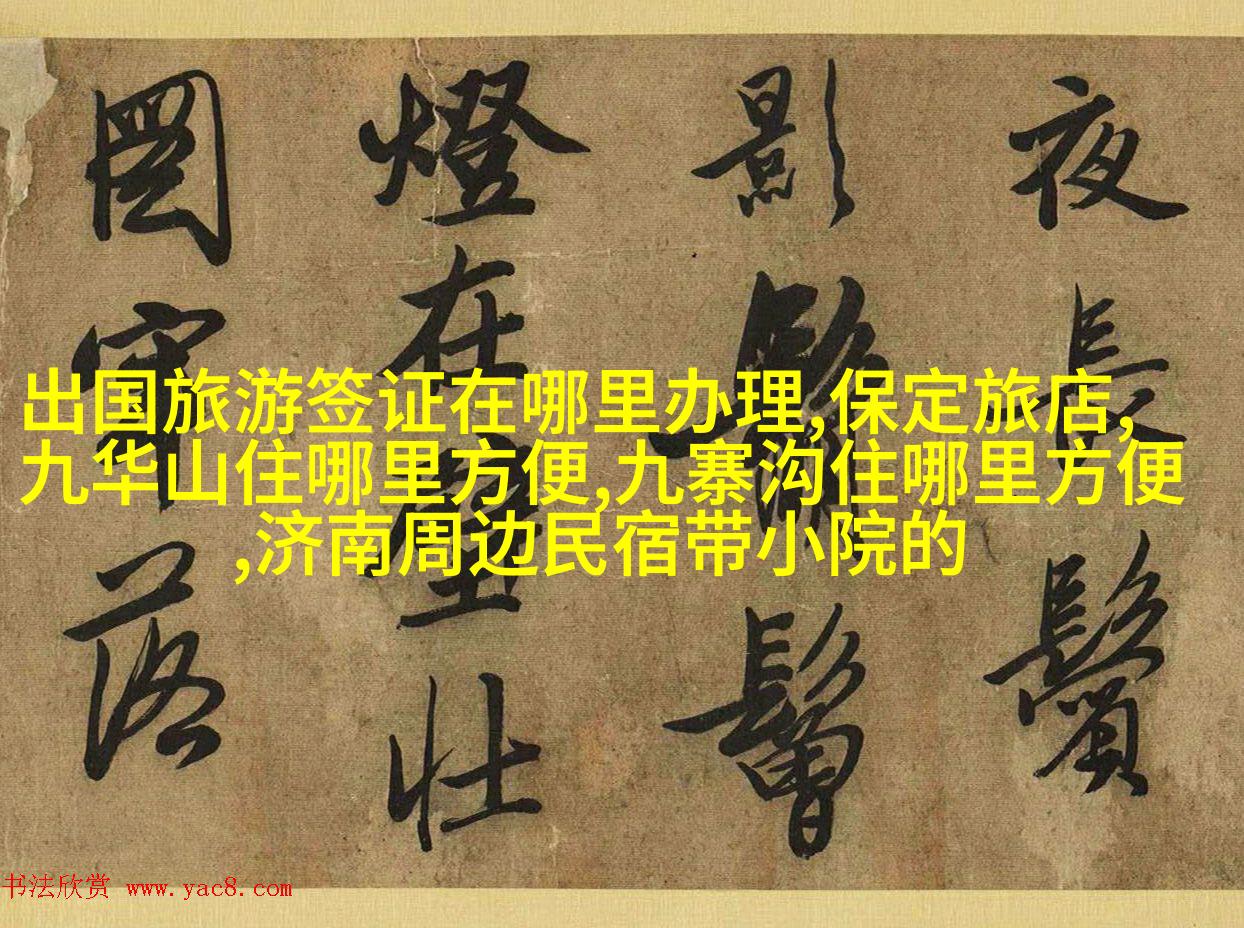 出国旅游签证在哪里办理,保定旅店,
九华山住哪里方便,九寨沟住哪里方便
,济南周边民宿带小院的
夜長鬢
影鬅鬙
燈在壁壯
圖牢落
书法欣赏 www.yac8.com